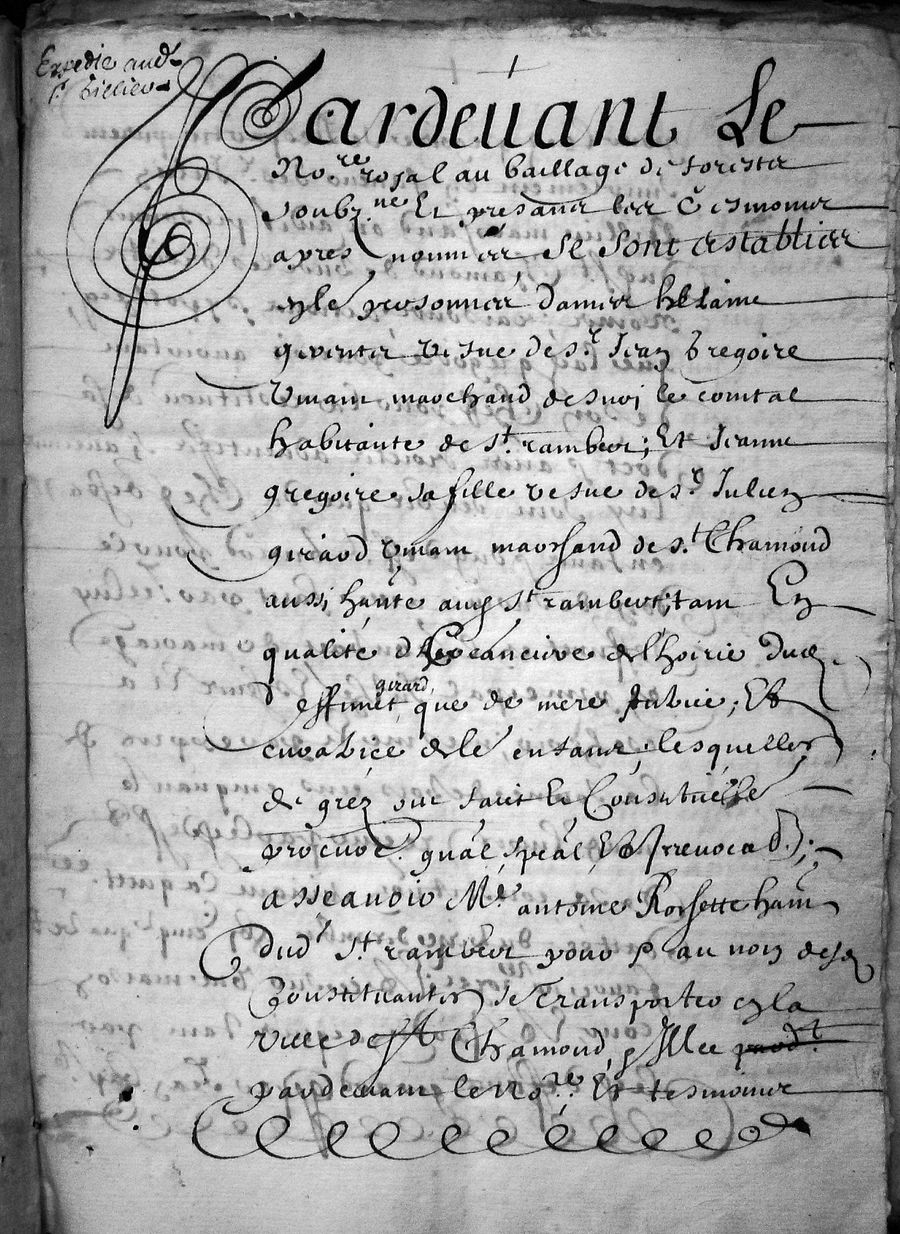 Expedie aud.
Sr tellier
Pardevant Le
No.re royal au baillage de forestz
soubz.né Et presantz les tesmoints
apres nommes se sont establies
en leurs personnes dames helaine
vesve de sr. Jean gregoire
vivant marchand de suri le comtal
habitante de st. rambert; Et Jeanne
gregoire sa fille vefve de sr Julien
girard vivant marchand de st Chamond
aussi hante aud st rambert; tant En
qualité de l'hoirie dud
deffunct girard, que de mere tutrice, Et
curatrice de leurs enfants, lesquelles
de grez ont faict Et Constitue
procur. gnal, spéal, Et Irrevocab;
asscavoir Me. antoine Rossette hant
dud. st. rambert pour & au nom desd
Constituantes se transporter en la
ville de st Chamond, & Illec
pardevant le no.re Et tesmoints